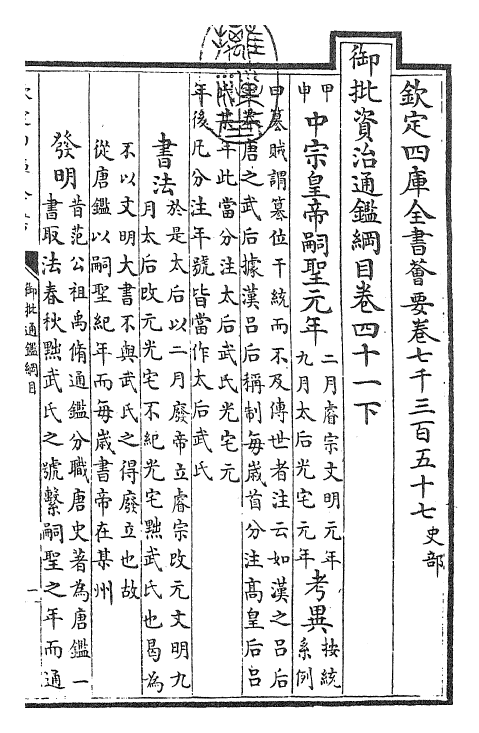 欽定四庫全書薈要卷七千三百五十七 史部
御批資治通鑑綱目卷四十一下
甲申 中宗皇帝嗣聖元年
二月睿宗文明元年
九月太后光宅元年
考異
按統
系例
曰篡賊謂篡位干統而不及傳世者注云如漢之呂后
唐之武后據漢呂后稱制每歲首分注高皇后呂
年此當分注太后武氏光宅元
年後凡分注年號皆當作太后武氏
書法
於是太后以二月廢帝立睿宗改元文明九
月太后改元光宅不紀光宅黜武氏也曷為
不以文明大書不與武氏之得廢立也故
從唐鑑以嗣聖紀年而每歲書帝在某州
發明
昔范公祖禹脩通鑑分職唐史著為唐鑑一
書取法春秋黜武氏之號繫嗣聖之年而通
御批通鑑綱目
一